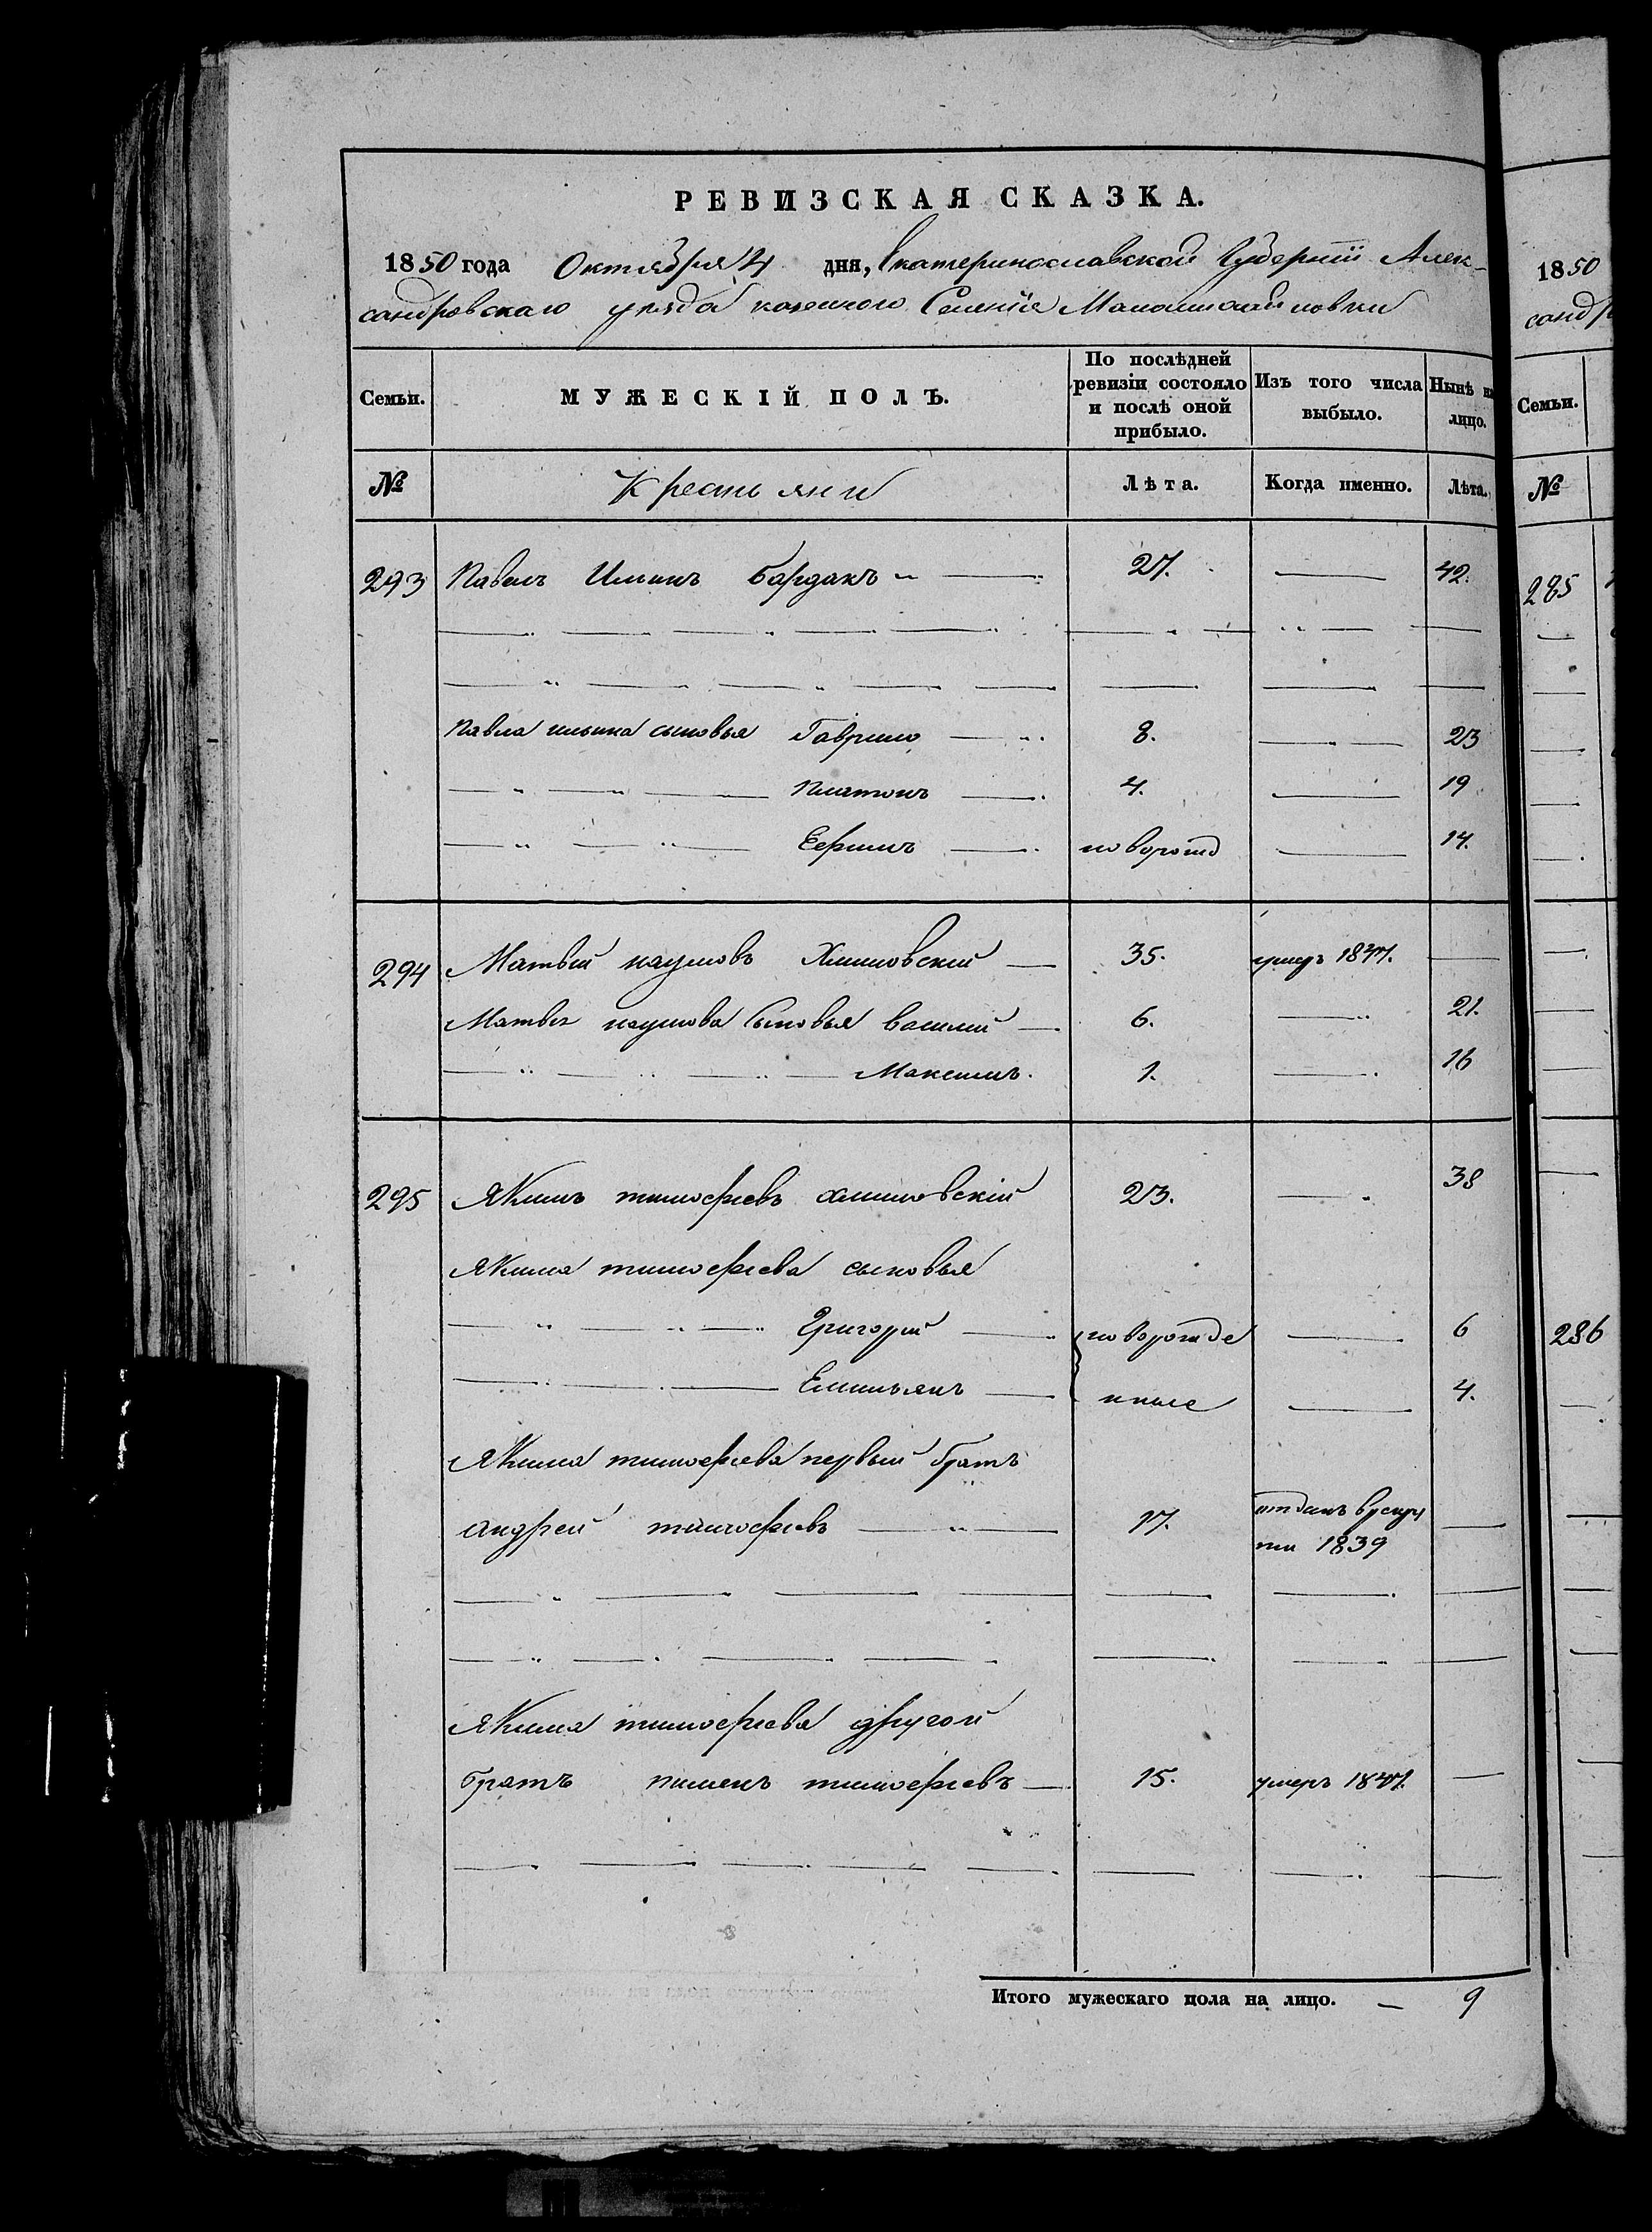 РЕВИЗСКАЯ СКАЗКА.
1850 года Октября 4 дня, Екатеринославской Губернии Алек-
сандровскаго уезда казенного Селения Маломихайловки
Семьи. МУЖЕСКІЙ ПОЛЪ. По послѣдней ревизіи состояло и послѣ оной прибыло. Изъ того числа выбыло. Нынѣ на лицо.
№ Крестьяни Лѣта. Когда именно. Лѣта.
293 Павелъ Ильинъ Бардакъ 27. 42.
Павла ильина сыновья Гаврило 8. 23
Платонъ 4. 19
новорожд 14.
294 Матвей наумовъ 35. умеръ 1847.
Матвея наумова Сыновья василий 6. 21.
Максимъ. 1. 16
295 Якимъ тимофеевъ 23. 38
Якима тимофеева сыновья
Григорий новорожде 6
Емильянъ нные 4.
Якима тимофеева первый братъ
андрей тимофеевъ 17. отданъ врекру
ты 1839
Якима тимофеева другой
братъ пименъ тимофеевъ 15. умеръ 1847.
Итого мужескаго пола на лицо. 9
1850
санд
Семьи.
№
285
286